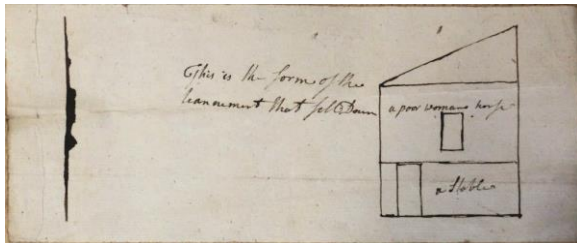 This is the form of the
teanement that fell Down
a poor womans house
a Stable